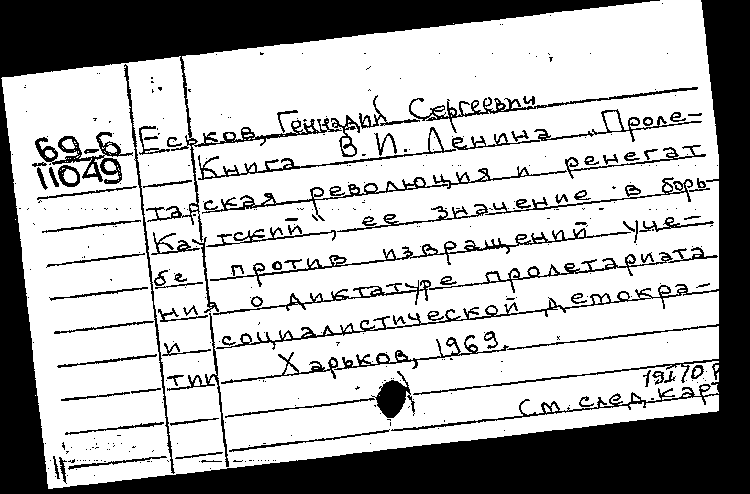 69-6
11049
Еськов, Геннадий Сергеевич
Книга В.И. Ленина „Проле-
тарская революция и ренегат
Каутский", ее значение в борь-
бе против извращений уче-
ния о диктатуре пролетариата
и социалистической демокра-
тии
Харьков, 1969.
См. след. карт